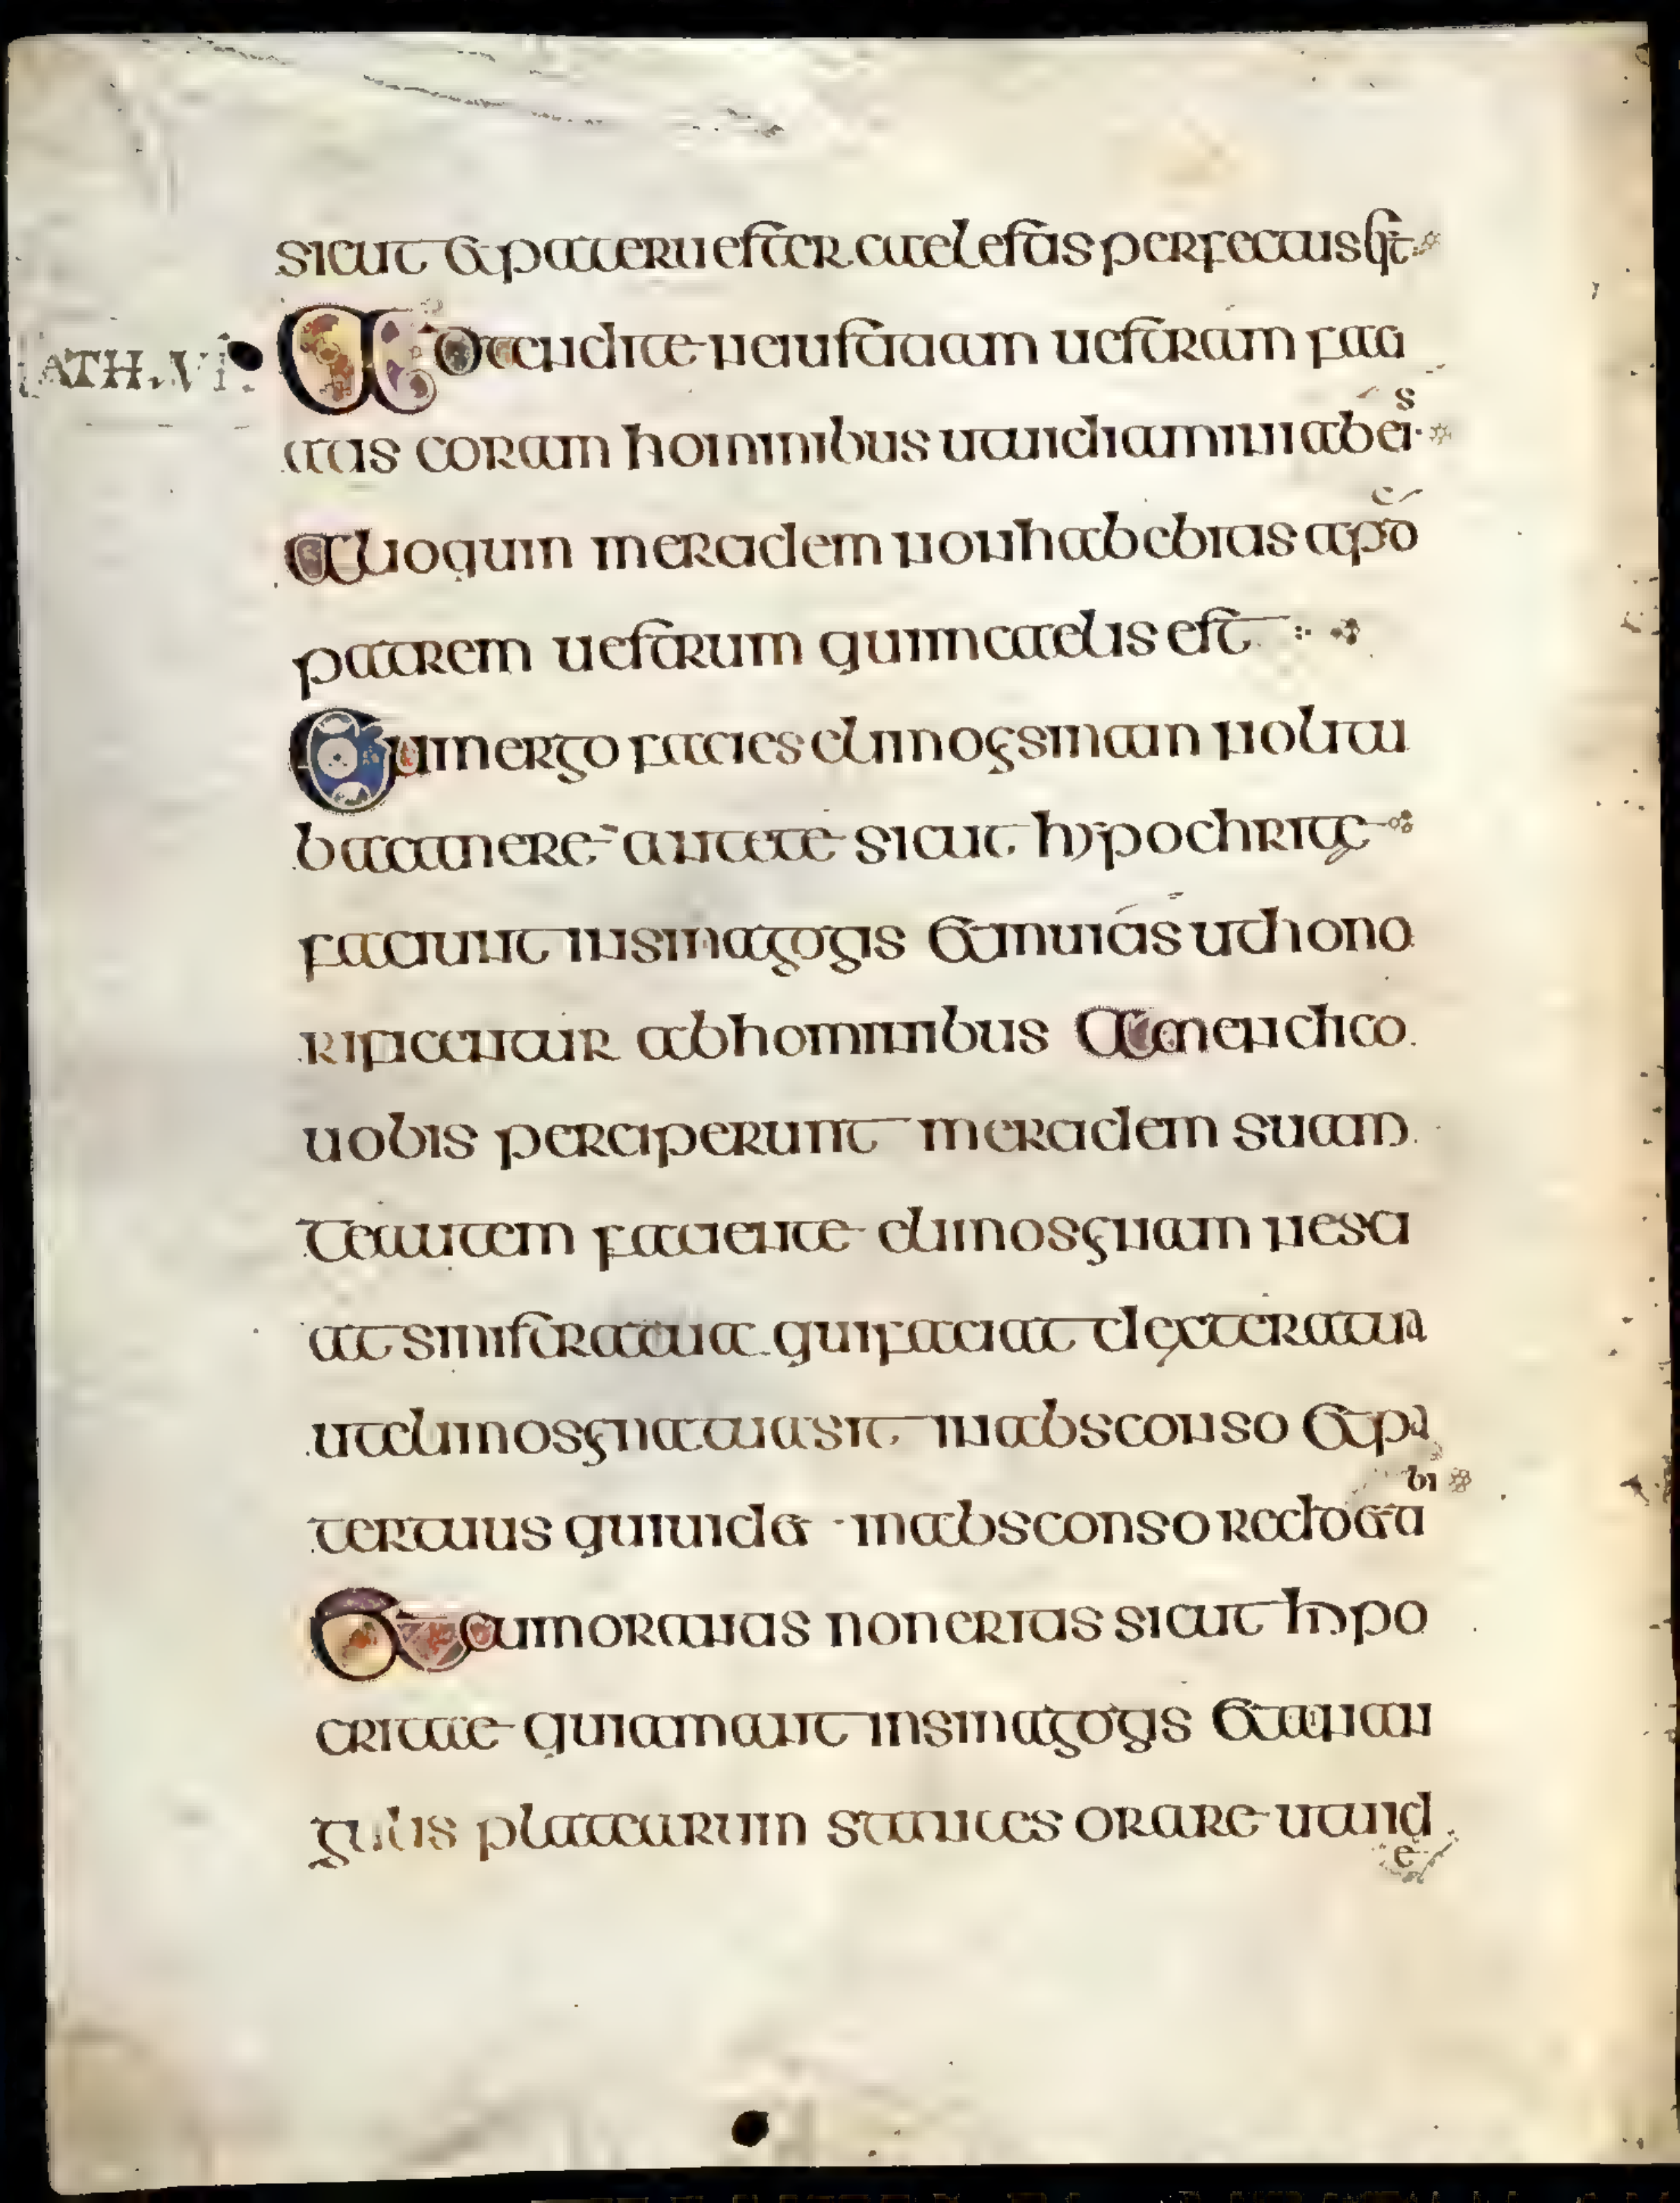 sicut et pater uester caelestis perfectus est
ATH. VI.
Attendite ne iustitiam uestram faci
atis coram hominibus ut uidiamini ab eis
alioquin mercidem non habebitis apod
patrem uestrum qui in caelis est
Cum ergo facies elimoẹsinam noli tu
ba canere ante te sicut hypochritę
faciunt in sinagogis et in uiis ut hono
rificentur ab hominibus Amen dico
uobis perciperunt mercidem suam
te autem faciente elimosęnam nesci
at sinistra tua qui faciat dextera tua
ut elimosęna tua sit in absconso et pa
ter tuus qui uidet in absconso reddet tibi
Et cum oratis non eritis sicut hypo
critae qui amant in sinagogis et in an
gulis platearum stantes orare ut uide